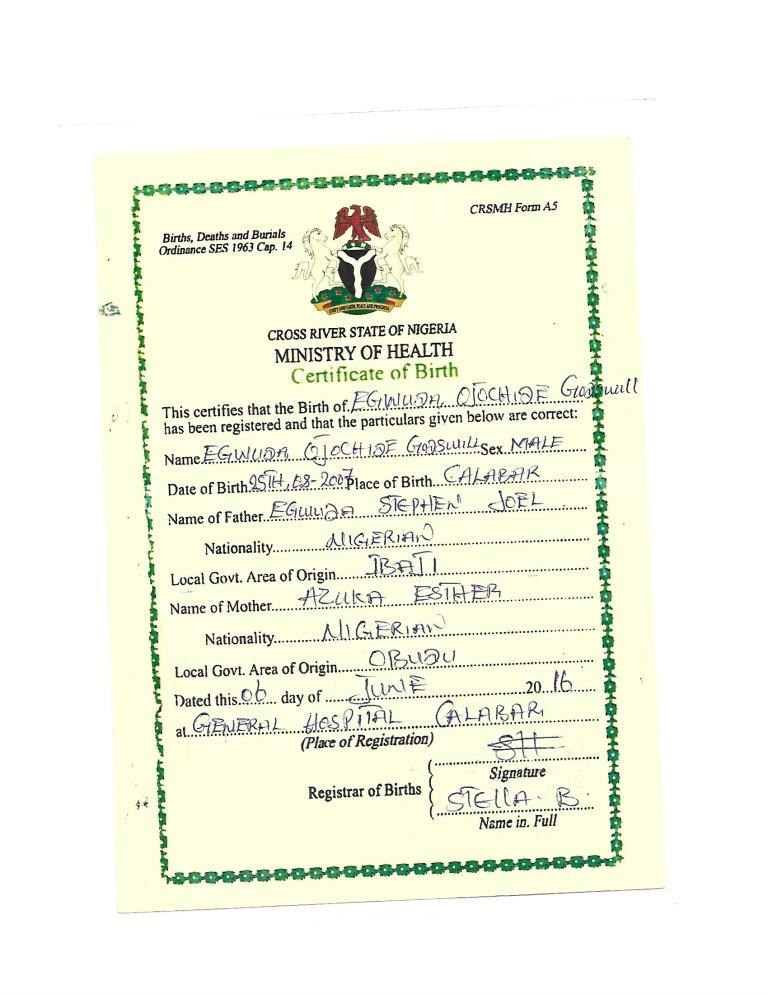 CRSMH Form A5
Births, Deaths and Burials
Ordinance SES 1963 Cap. 14
CROSS RIVER STATE OF NIGERIA
MINISTRY OF HEALTH
Certificate of Birth
This certifies that the Birth of EGWUDA OJOCHIDE Godswill
has been registered and that the particulars given below are correct:
Name EGWUDA OJOCHIDE GODSWILL Sex MALE
Date of Birth 25TH, 08-2007 Place of Birth CALABAR
Name of Father EGWUDA STEPHEN JOEL
Nationality NIGERIAN
Local Govt. Area of Origin IBAJI
Name of Mother AZUKA ESTHER
Nationality NIGERIAN
Local Govt. Area of Origin OBUDU
Dated this 06 day of JUNE 20 16
at GENERAL HOSPITAL CALABAR
(Place of Registration)
Signature
Registrar of Births
STELLA. B.
Name in. Full